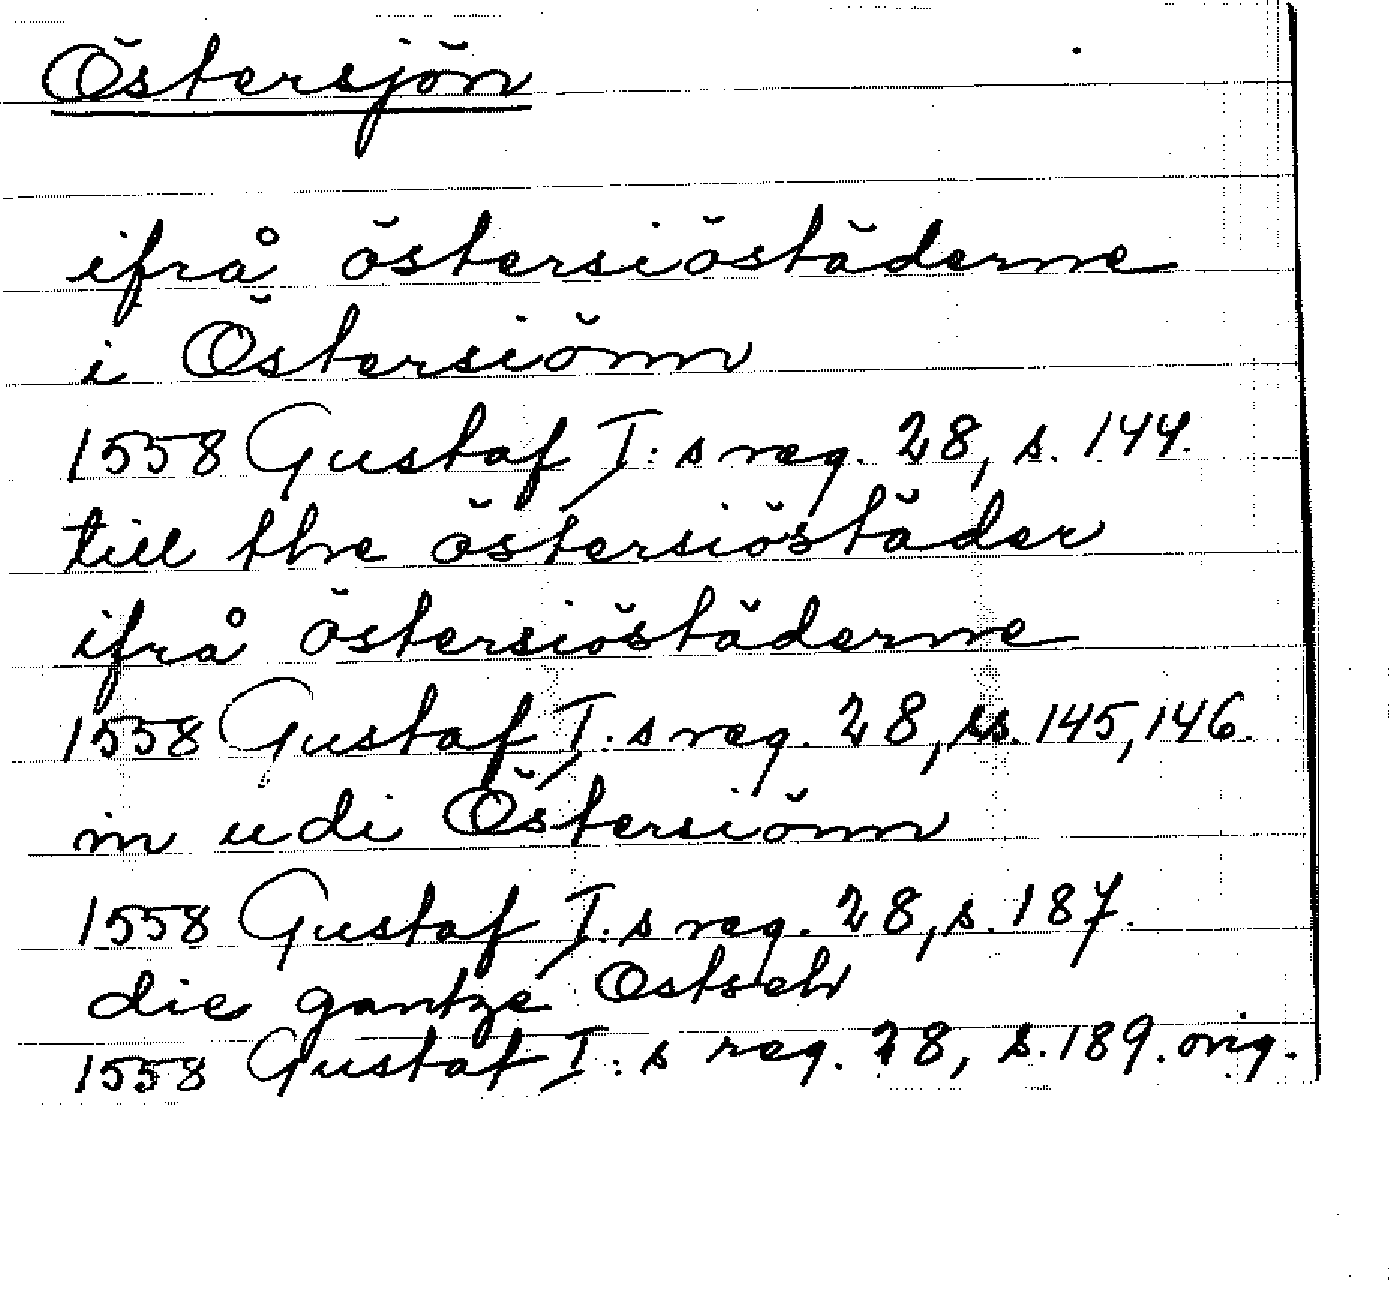 Östersjön
ifrå östersiöstäderne
i Östersiönn
1558 Gustaf I:s reg. 28, s. 144.
till the östersiöstäder
ifrå östersiöstäderne
1558 Gustaf I:s reg. 28, ss. 145, 146.
in udi Östersiönn
1558 Gustaf I:s reg. 28, s. 187.
die gantze Ostseh
1558 Gustaf I:s reg. 28, s. 189. orig.